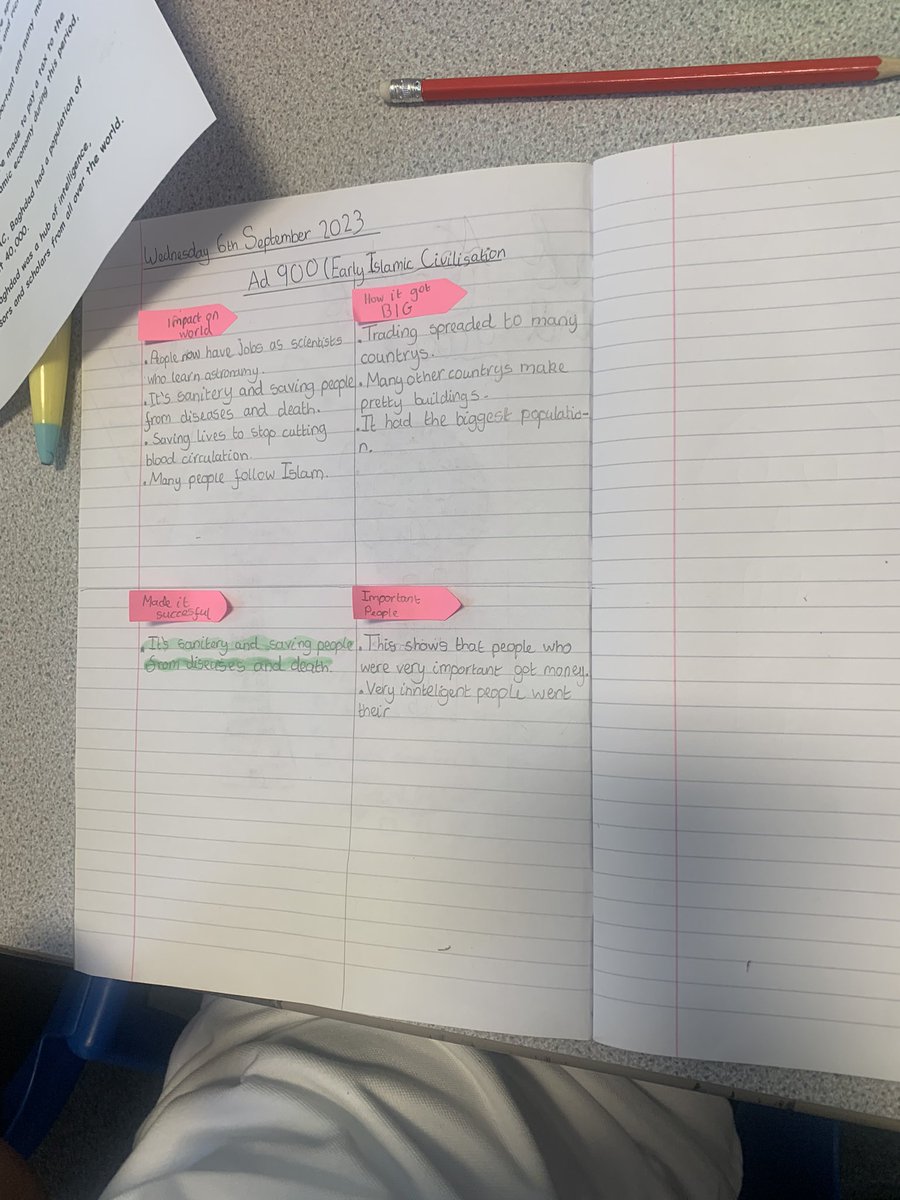 ortant and many mo
e made to pay a tax to the
amic economy during this period.
AC, Baghdad had a population of
t 40,000.
aghdad was a hub of intelligence,
sors and scholars from all over the world.
Wednesday 6th September 2023
Ad 900 (Early Islamic Civilisation
Impact on
world
• People now have Jobs as scientists
who learn astronomy.
• It's sanitery and saving people
from diseases and death.
• Saving lives to stop cutting
blood circulation.
• Many people follow Islam.
How it got
BIG
• Trading spreaded to many
countrys.
• Many other countrys make
pretty buildings.
• It had the biggest populatio-
n.
Made it
succesful
• It's sanitery and saving people
from diseases and death.
Important
People
• This shows that people who
were very important got money.
• Very innteligent people went
their